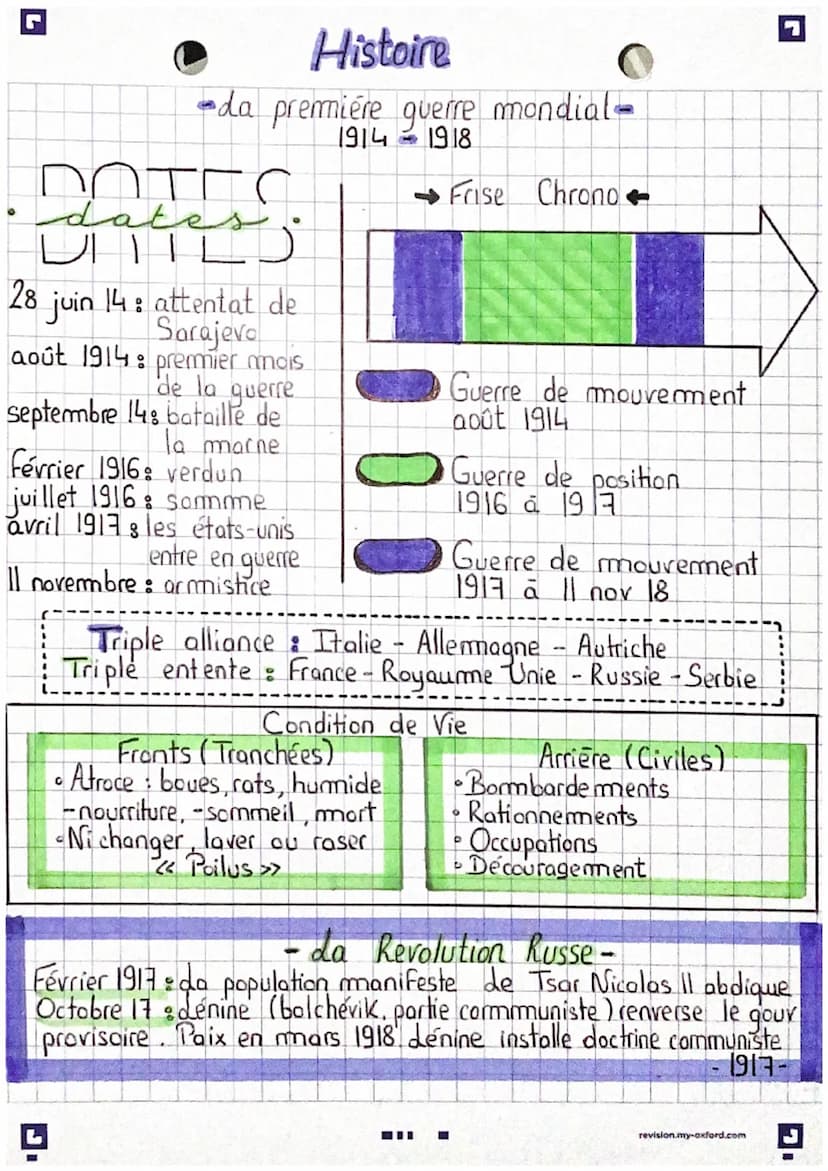 Histoire
-La premiére guerre mondial-
1914 - 1918
DATES
. dates .
28 juin 14 : attentat de
Sarajevo
août 1914 : premier mois
de la guerre
septembre 14 : bataille de
la marne
février 1916 : verdun
juillet 1916 : somme
avril 1917 : les états-unis
entre en guerre
11 novembre : armistice
→ Frise Chrono ←
Guerre de mouvement
août 1914
Guerre de position
1916 à 1917
Guerre de mouvement
1917 à 11 nov 18
Triple alliance : Italie - Allemagne - Autriche
Triple entente : France - Royaume Unie - Russie - Serbie
Condition de Vie
Fronts (Tranchées)
• Atroce : boues, rats, humide
-nourriture, -sommeil, mort
• Ni changer, laver ou raser
« Poilus »
Arrière (Civiles)
• Bombardements
• Rationnements
• Occupations
• Découragement
- La Revolution Russe -
Février 1917 : La population manifeste Le Tsar Nicolas II abdique
Octobre 17 : Lénine (bolchévik, partie communiste) renverse le gouv
provisoire. Paix en mars 1918 Lénine installe doctrine communiste
- 1917 -
revision.my-oxford.com